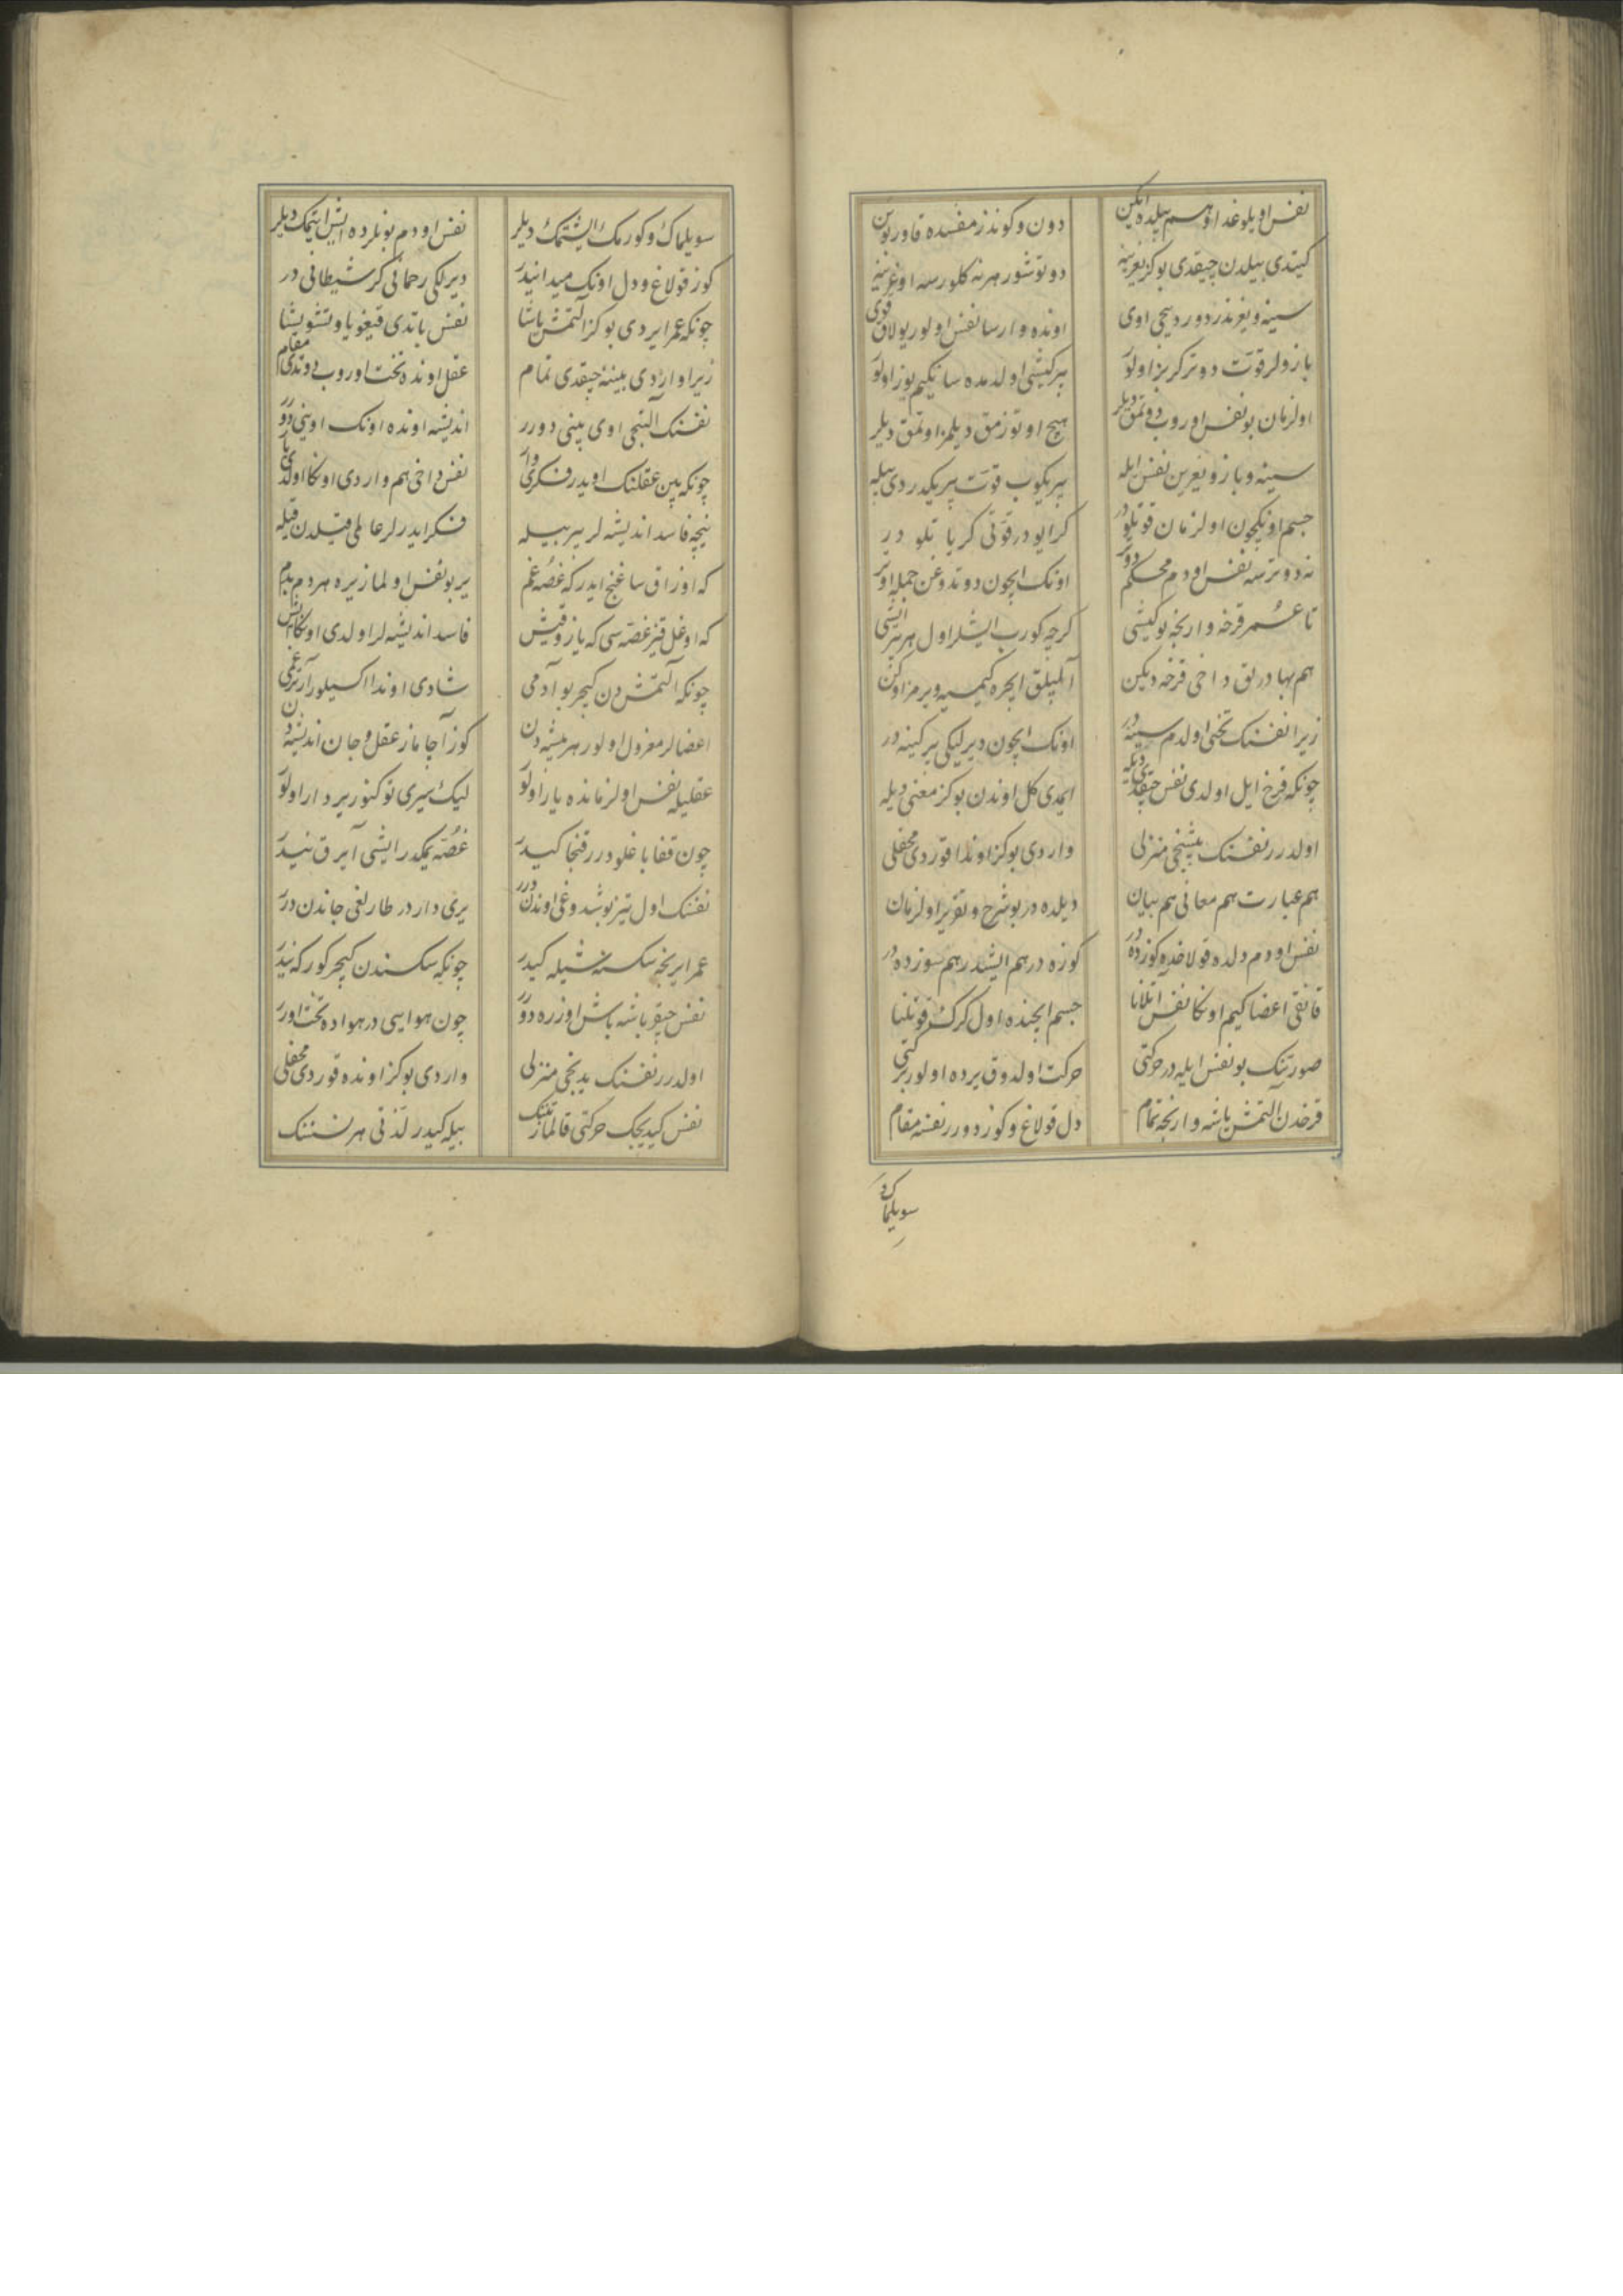 نفس اویلوغدا و هم بیلده ایکن دون و کوندز مفسده قاورنوسن
کیتدی بیلدن چیقدی بو کز بغرینه دوتوشور هر نه کلورسه اوغرینه
سینه و بغرندر دوردنجی اوی اونده وارسا نفس اولور یولان قوی
بازولر قوت دوتر کربز اولور بیر کیشی اولدمده سانکیم یوز اولور
اولزمان بو نفس اوروب دوتمق دیلر هیچ اوتوزمق دیلمز اوتمق دیلر
سینه و بازو بغرین نفس ایله بیریکوب قوت بیریکدردی بیله
جسم اونکچون اولزمان قوتلودر کر ایودر قوتی کر یاتلودر
نه دوترسه نفس اودم محکم دوتر اونک ایچون دوتدوغن جمله اوتر
تا عمر قرخه وارنجه بو کیشی کرچه کورب ایشلر اول هر بیر ایشی
هم بهادرلق داخی قرخه دیکین آلپلق ایچره کیمسیه ویرمز اوکن
زیرا نفسنک تختی اولدم سینه‌در اونک ایچون دیرلیکی بیر کینه‌در
چونکه قرخ ایل اولدی نفس چیقدی دیله ایمدی کل اوندن بو کز معنی دیله
اولدرر نفسنک بیشنجی منزلی واردی بو کز اوندا قوردی محفلی
هم عبارت هم معانی هم بیان دیلده‌در بو شرح و تقریر اولزمان
نفس اودم دلده قولاغده کوزده‌در کوزه‌در هم ایشدر هم سوزده‌در
قانقی اعضا کیم اونکا نفس آتلانا جسم ایچنده اول کرک قوتلنا
صورتنک بو نفس ایله در حرکتی حرکت اولدوق یرده اولور برکتی
قرخدن آلتمش یاشه وارنجه تمام دل قولاغ و کوز دورر نفسه مقام
سویلماک و
سویلماک و کورمک ایشتمک دیلر نفس اودم بونلرده ایش ایتمک دیلر
کوز قولاغ و دل اونک میدانیدر دیرلکی رحمانی کر شیطانی در
چونکه عمر ایردی بو کز آلتمش یاشا نفس باتدی قیغویا و تشویشا
زیرا واردی بینیه چیقدی تمام عقل اونده تخت اوروب دوتدی مقام
نفسنک آلتنجی اوی بینی دورر اندیشه اونده اونک اوینی دورر
چونکه بین عقلنک اویدر فکری وار نفس داخی هم واردی اونکا اولدی یار
نیچه فاسد اندیشه لر بیر بیله فکر ایدرلر عالمی قیلدن قیله
که اوزاق ساغنج ایدر که غصه غم یر بو نفس اولماز یره هر دم بدم
که اوغل قیز غصه سی که یاز و قیش فاسد اندیشه لر اولدی اونکا ایش
چونکه آلتمش دن کیچر بو آدمی شادی اوندا اکسیلور آرتر غمی
اعضالر معزول اولور هر پیشه دن کوز آچاماز عقل و جان اندیشه دن
عقلیله نفس اولزمانده یار اولور لیک سیری توکنور بردار اولور
چون قفا باغلودرر قنجا کیدر غصه یمکدر ایشی آیرق نیدر
نفسنک اول تیز بوشدوغی اوندن درر یری داردر طارلغی جاندن درر
عمر ایرنجه سکسنه شیله کیدر چونکه سکسندن کیچر کور که نیدر
نفس چیقر باشه باش اوزره دورر چون هوایی در هواده تخت اورر
اولدرر نفسنک یدنجی منزلی واردی بو کز اونده قوردی محفلی
نفس کیدیجک حرکتی قالماز تننک بیله کیدر لذتی هر نسننک